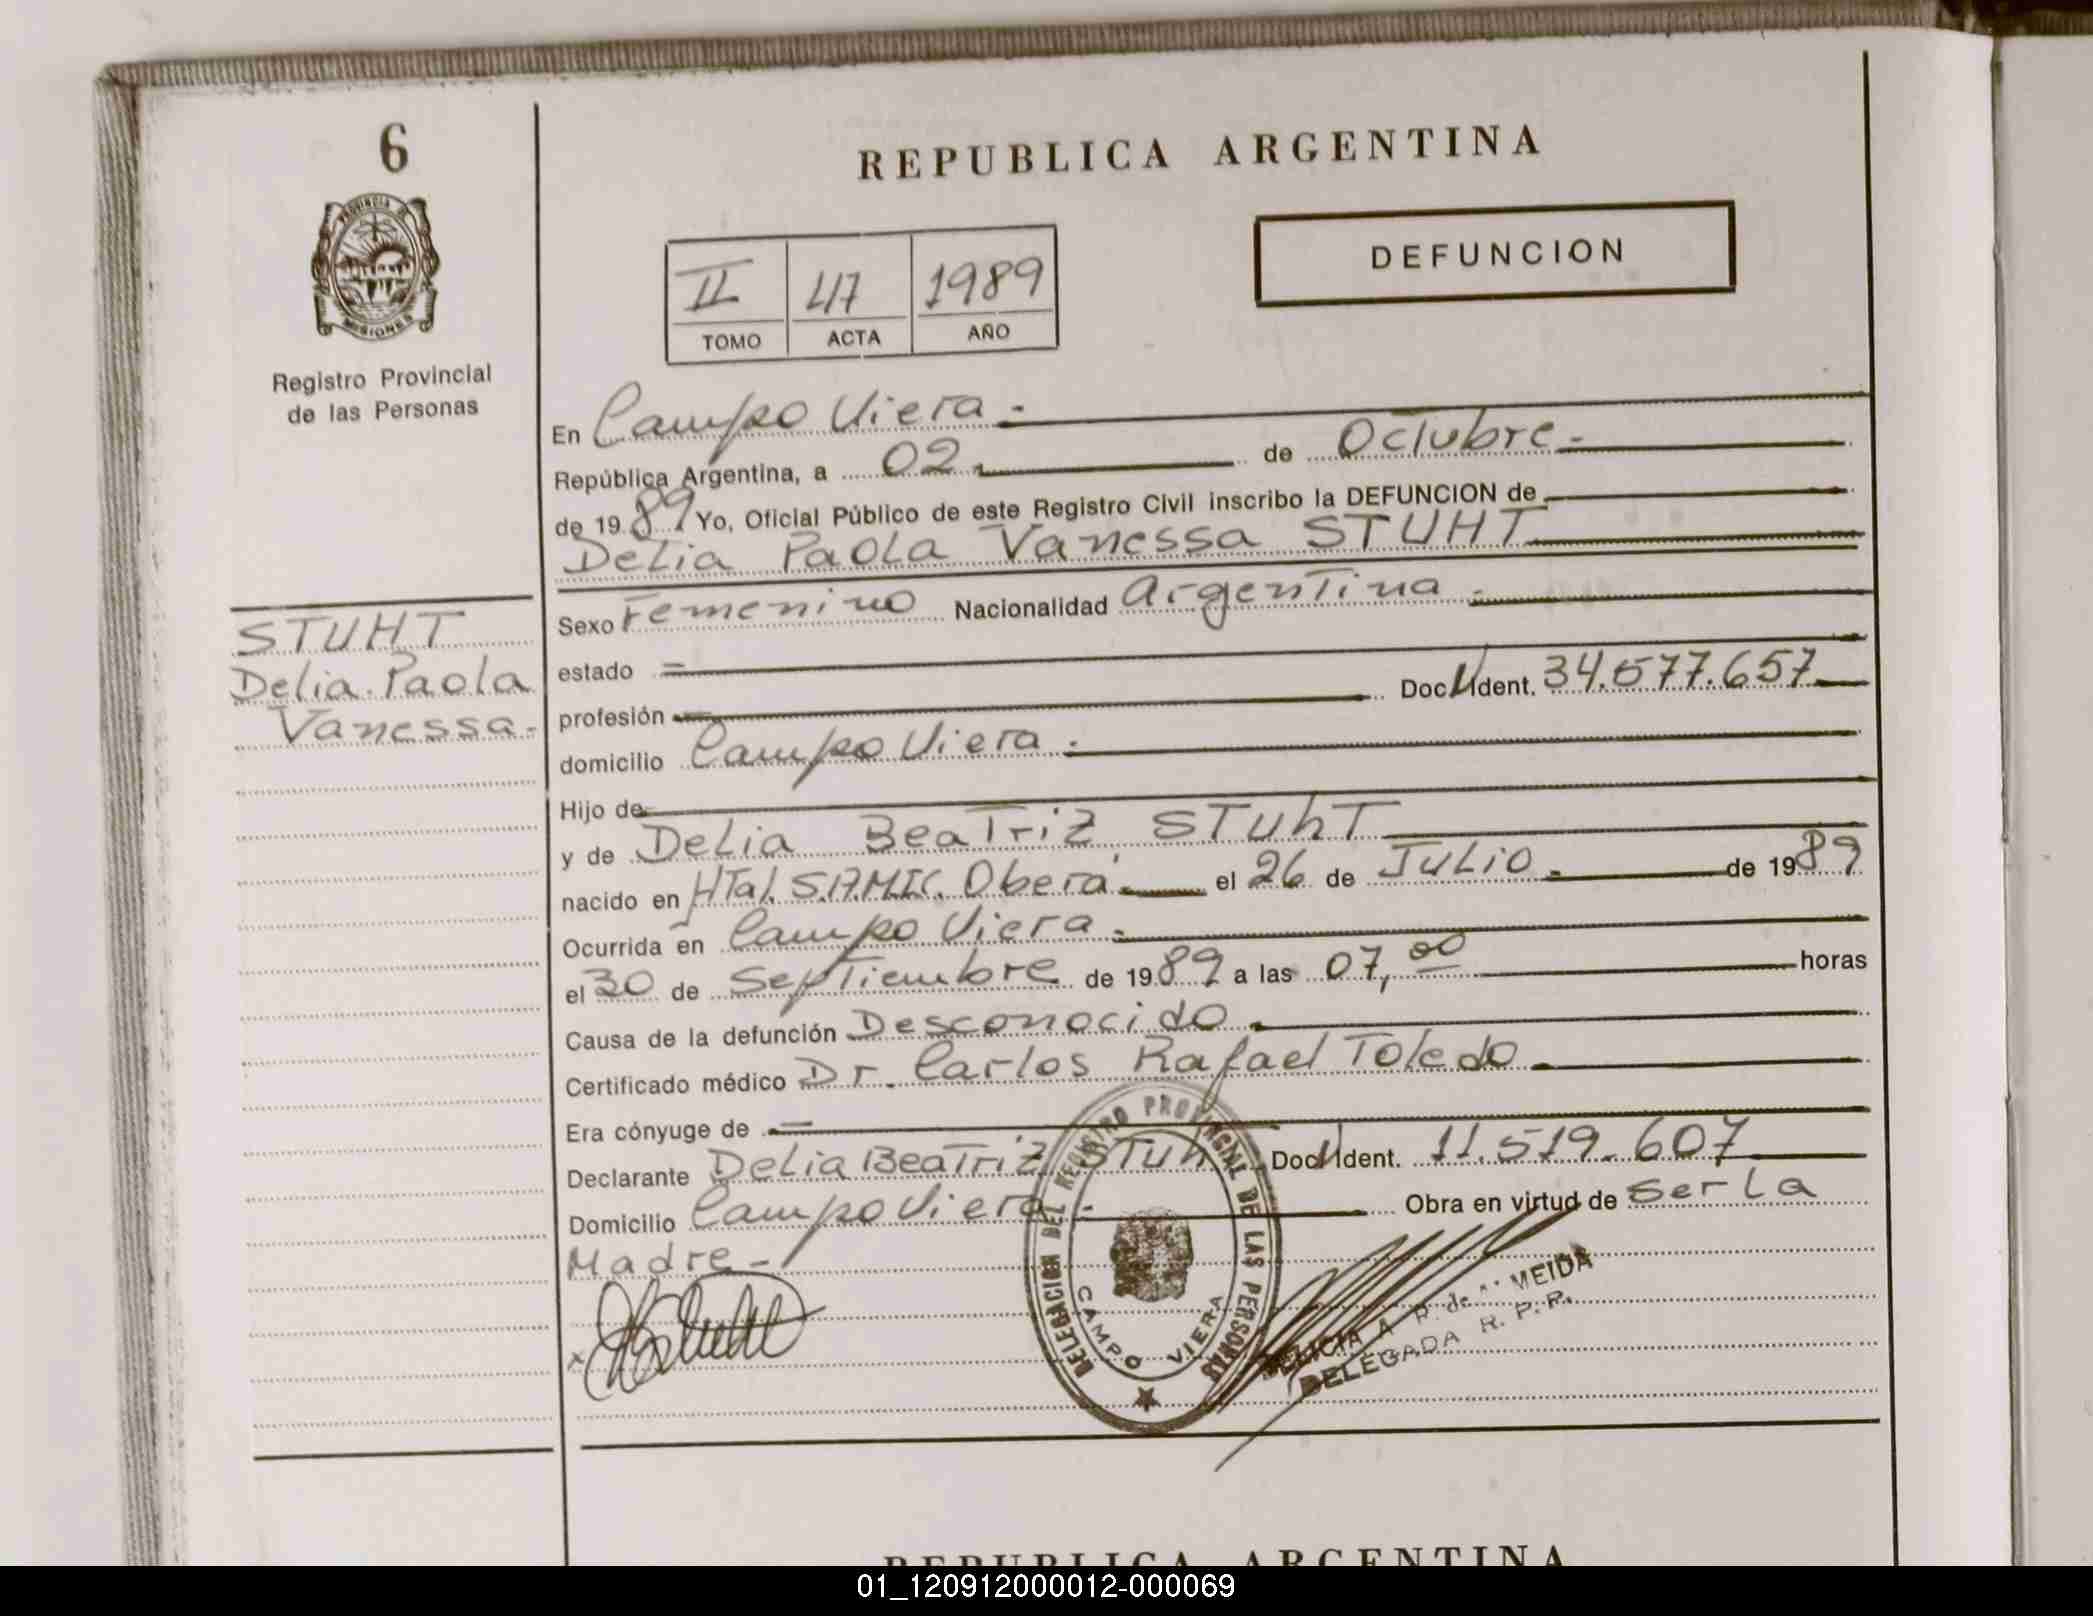 6
PROVINCIA DE
MISIONES
Registro Provincial
de las Personas
STUHT
Delia Paola
Vanessa.-
REPUBLICA ARGENTINA
DEFUNCION
II 47 1989
TOMO ACTA AÑO
En Campo Viera.-
República Argentina, a 02 de Octubre.-
de 1989 Yo, Oficial Público de este Registro Civil inscribo la DEFUNCION de
Delia Paola Vanessa STUHT
Sexo Femenino Nacionalidad Argentina.-
estado =
profesión = Doc. Ident. 34.577.657
domicilio Campo Viera.
Hijo de
y de Delia Beatriz STuhT
nacido en HTal. S.A.MIC. Oberá.- el 26 de Julio.- de 1989
Ocurrida en Campo Viera.-
el 30 de Septiembre de 1989 a las 07,00 horas
Causa de la defunción Desconocido.
Certificado médico Dr. Carlos Rafael Toledo.
Era cónyuge de =
Declarante Delia Beatriz STuhT Doc. Ident. 11.519.607
Domicilio Campo Viera.- Obra en virtud de ser la
Madre.-
x
DELEGACION DEL REGISTRO PROVINCIAL DE LAS PERSONAS
CAMPO VIERA
DELEGADA R. P. P.
REPUBLICA ARGENTINA
01_120912000012-000069